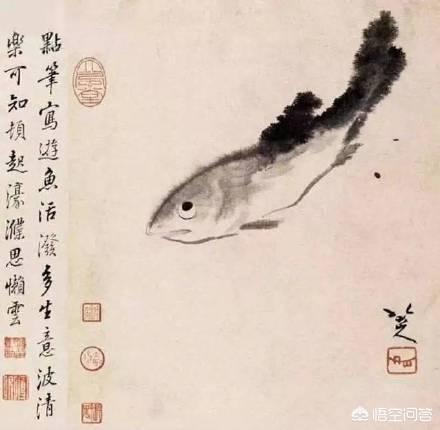 點筆寫遊魚活潑多生意波清
樂可知頓起濠濮思懶雲
八大
悟空问答